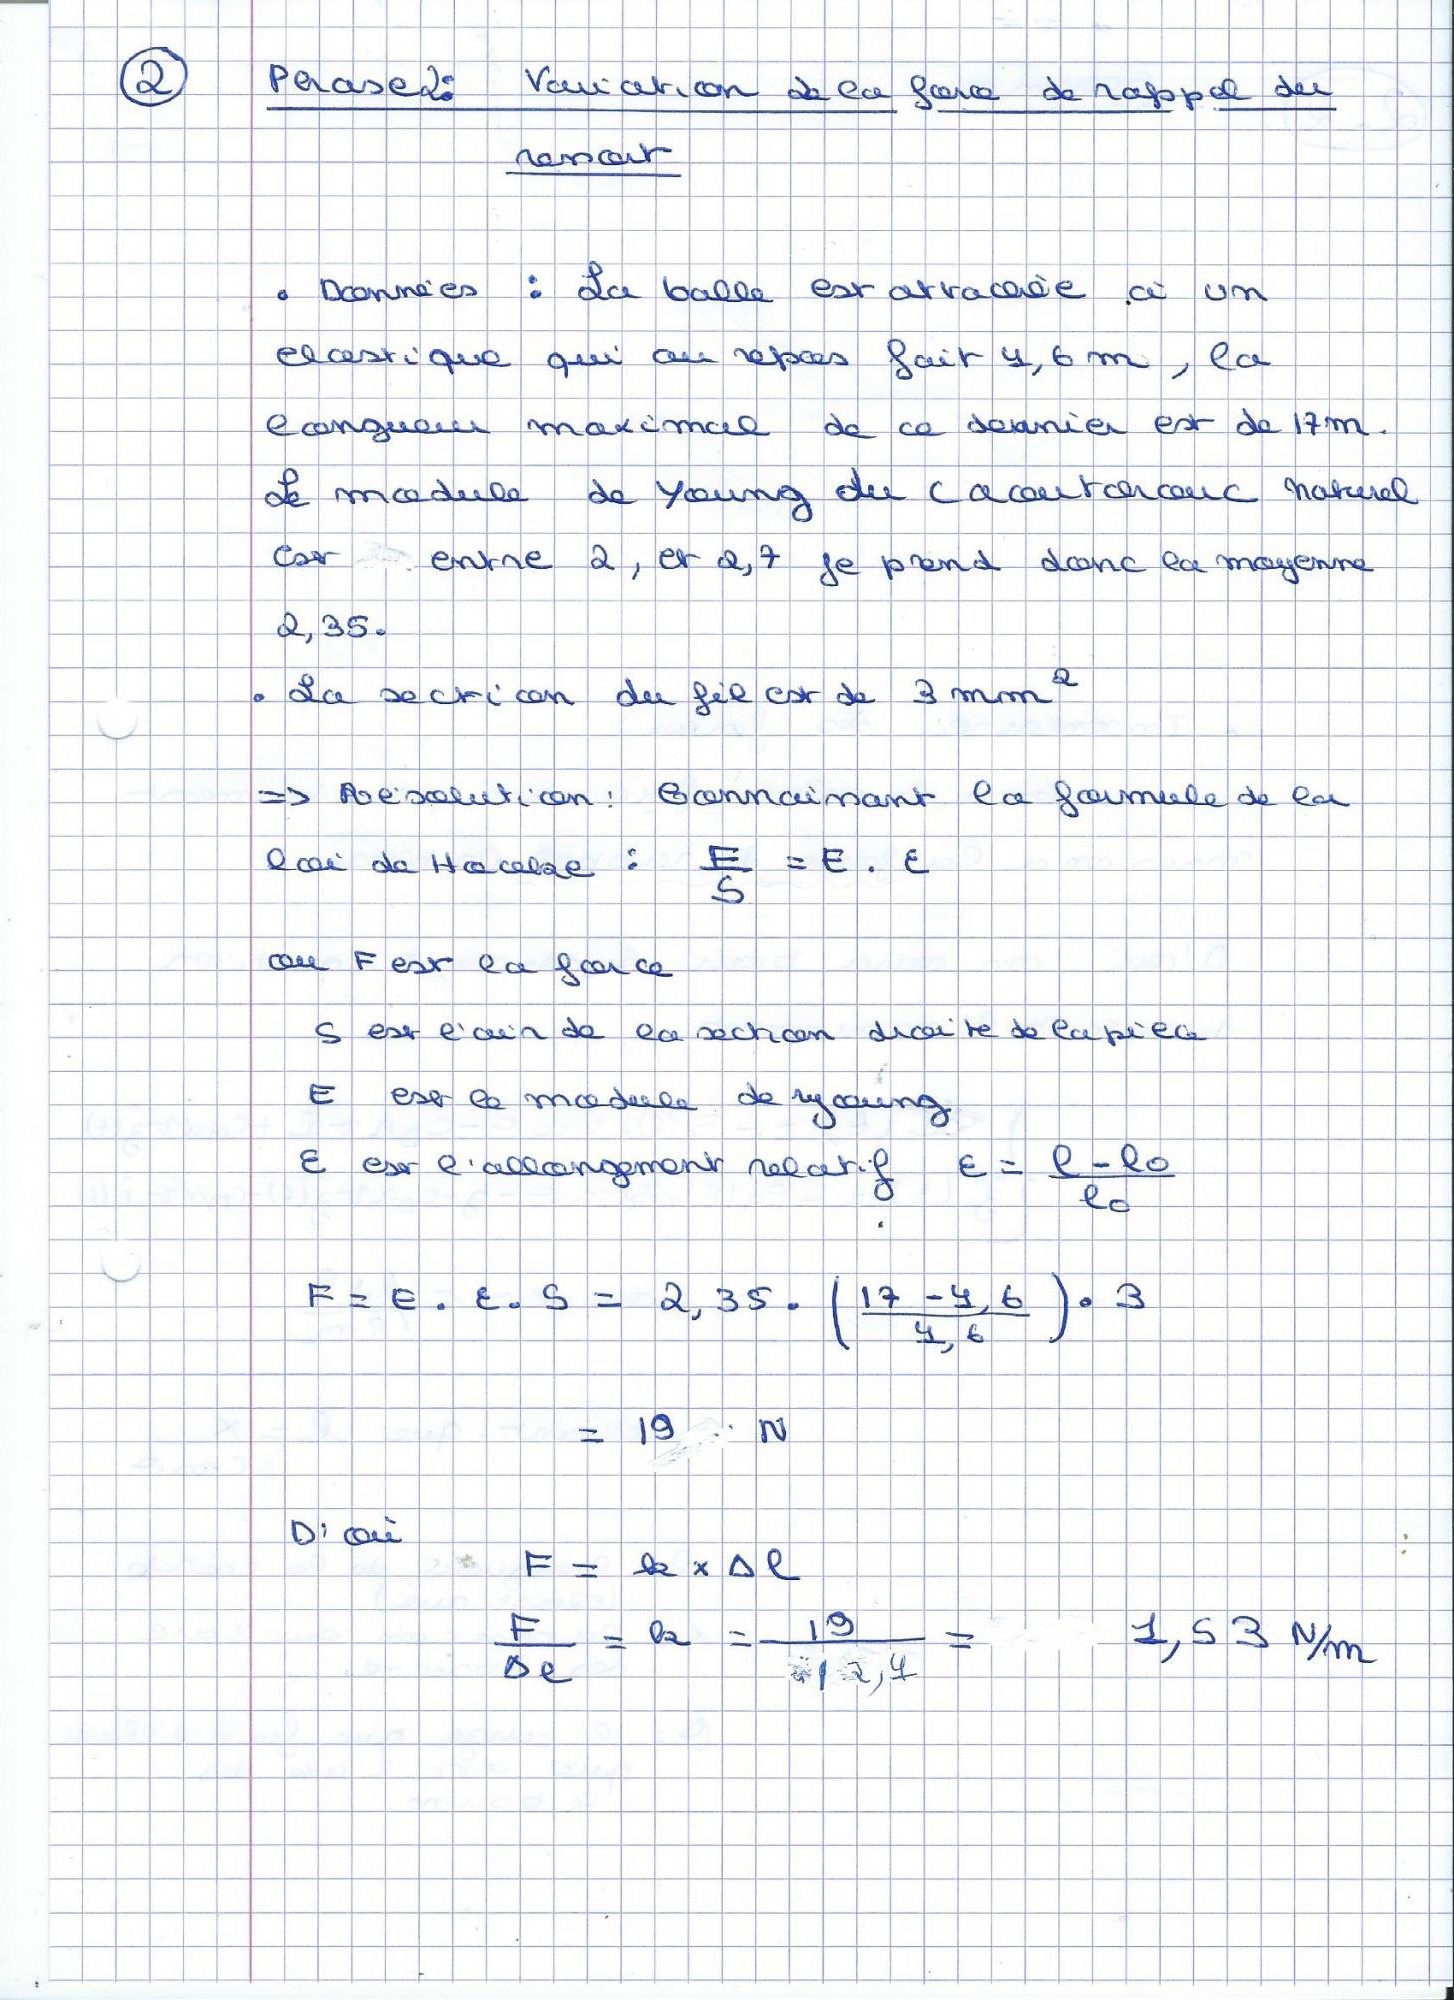 ②
Phase 2: Variation de la force de rappel du
ressort
• Données : La balle est attachée à un
elastique qui au repos fait 4,6 m, la
longueur maximal de ce dernier est de 17m.
Le module de Young du Caoutchouc naturel
est entre 2, et 2,7 je prend donc la moyenne
2,35.
• La section du fil est de 3 mm²
=> Résolution: Connaissant la formule de la
loi de Hooke : F/S = E . ε
ou F est la force
S est l'air de la section droite de la pièce
E est le module de young
ε est l'allongement relatif ε = (l - l0)/l0
F = E . ε . S = 2,35 . ((17 - 4,6)/4,6) . 3
= 19 N
D'où
F = k x Δl
F/Δl = k = 19/12,4 = 1,53 N/m